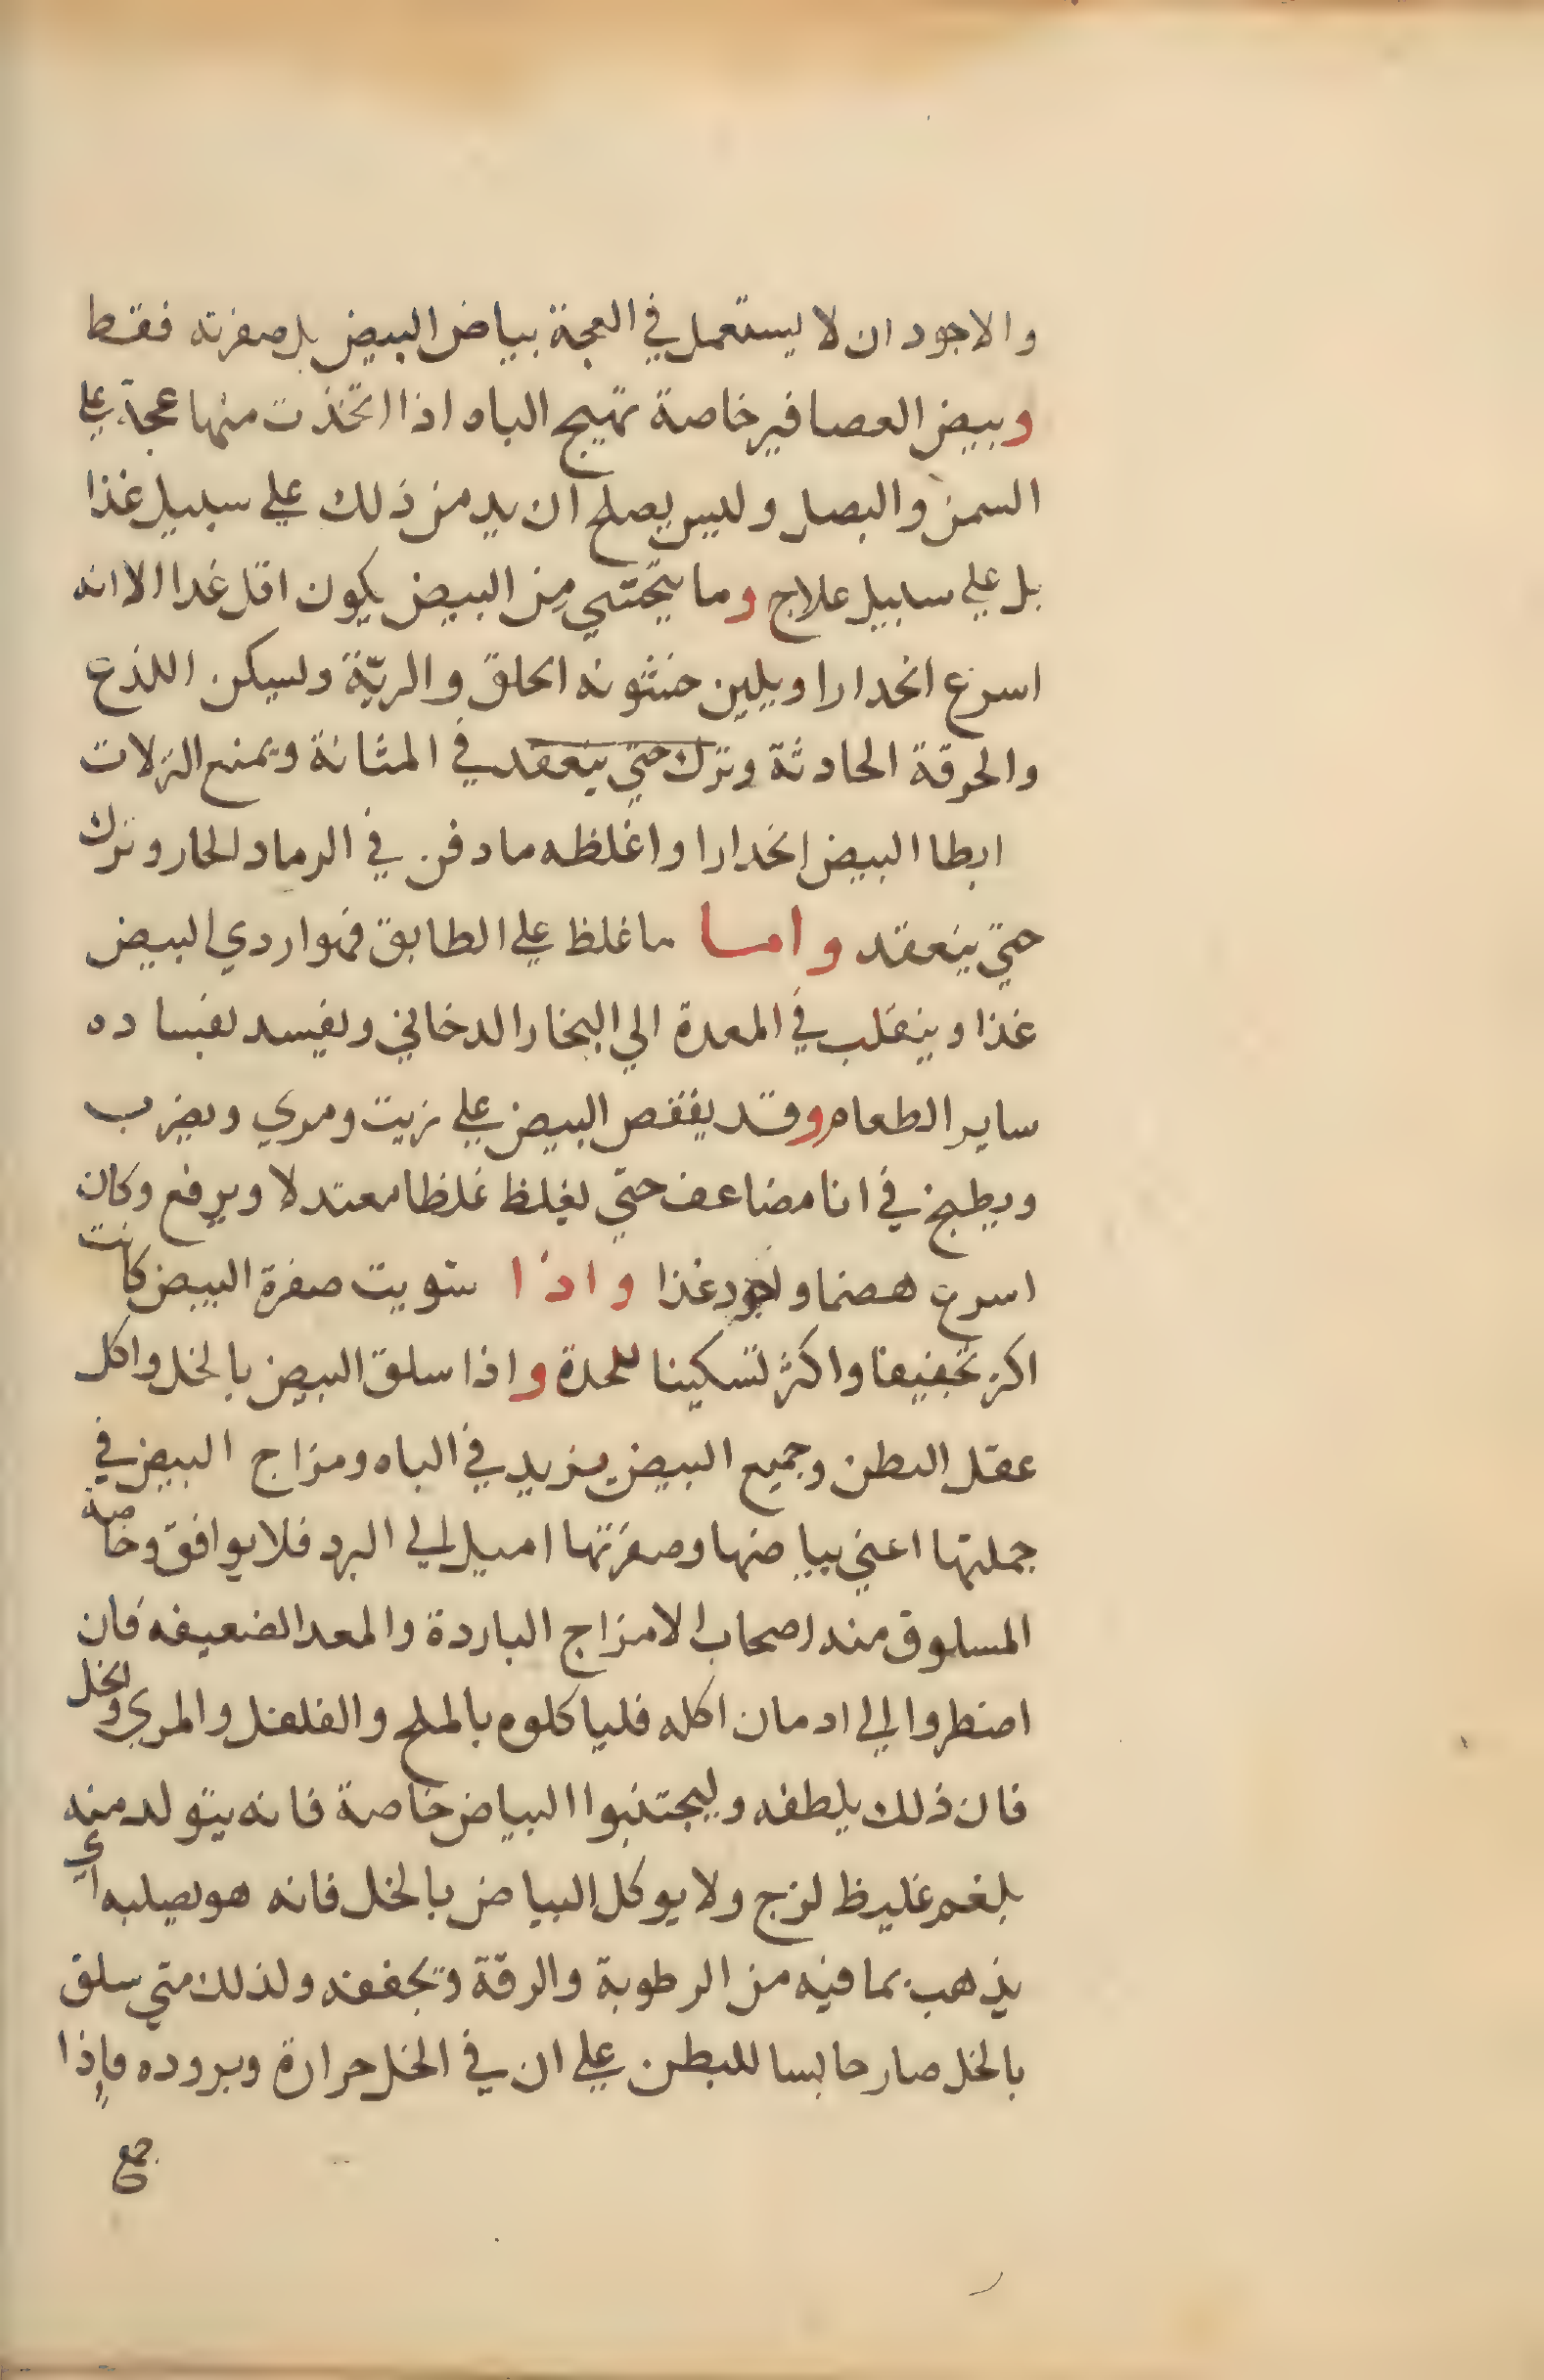 والاجود ان لا يستعمل في العجة بياض البيض بل صفرته فقط
وبيض العصافير خاصة تهيج الباه اذا اتخذت منها عجة علي
السمن والبصل وليس يصلح ان يدمن ذلك علي سبيل غذا
بل علي سبيل علاج وما يتحسي من البيض يكون اقل غدا الا انه
اسرع انحدارا ويلين خشونه الحلق والريّة ويسكن اللذع
والحرقة الحادثة وترك حتي ينعقد في المثانة ويمنع النزلات
ابطا البيض انحدارا واغلظه ما دفن في الرماد الحار وترك
حتي ينعقد واما ما غلظ علي الطابق فهو اردي البيض
غذا وينقلب في المعدة الي البخار الدخاني ويفسد بفساده
ساير الطعام وقد يفقص البيض علي زيت ومري ويضرب
ويطبخ في انا مضاعف حتي يغلظ غلظا معتدلا ويرفع وكان
اسرع هضما واجود غذا واذا شويت صفرة البيض كانت
اكثر تجفيفا واكثر تسكينا للحدة واذا سلق البيض بالخل واكل
عقل البطن وجميع البيض يزيد في الباه ومزاج البيض في
جملتها اعني بياضها وصفرتها اميل الي البرد فلا يوافق وخاصة
المسلوق منه اصحاب الامزاج الباردة والمعد الضعيفه فان
اضطروا الي ادمان اكله فلياكلوه بالملح والفلفل والمري والخل
فان ذلك يلطفه وليجتنبوا البياض خاصة فانه يتولد منه
بلغم غليظ لزج ولا يوكل البياض بالخل فانه هو يصلبه اي
يذهب بما فيه من الرطوبة والرقة وتجففه ولذلك متي سلق
بالخل صار حابسا للبطن علي ان في الخل حرارة وبروده فاذا
جمع